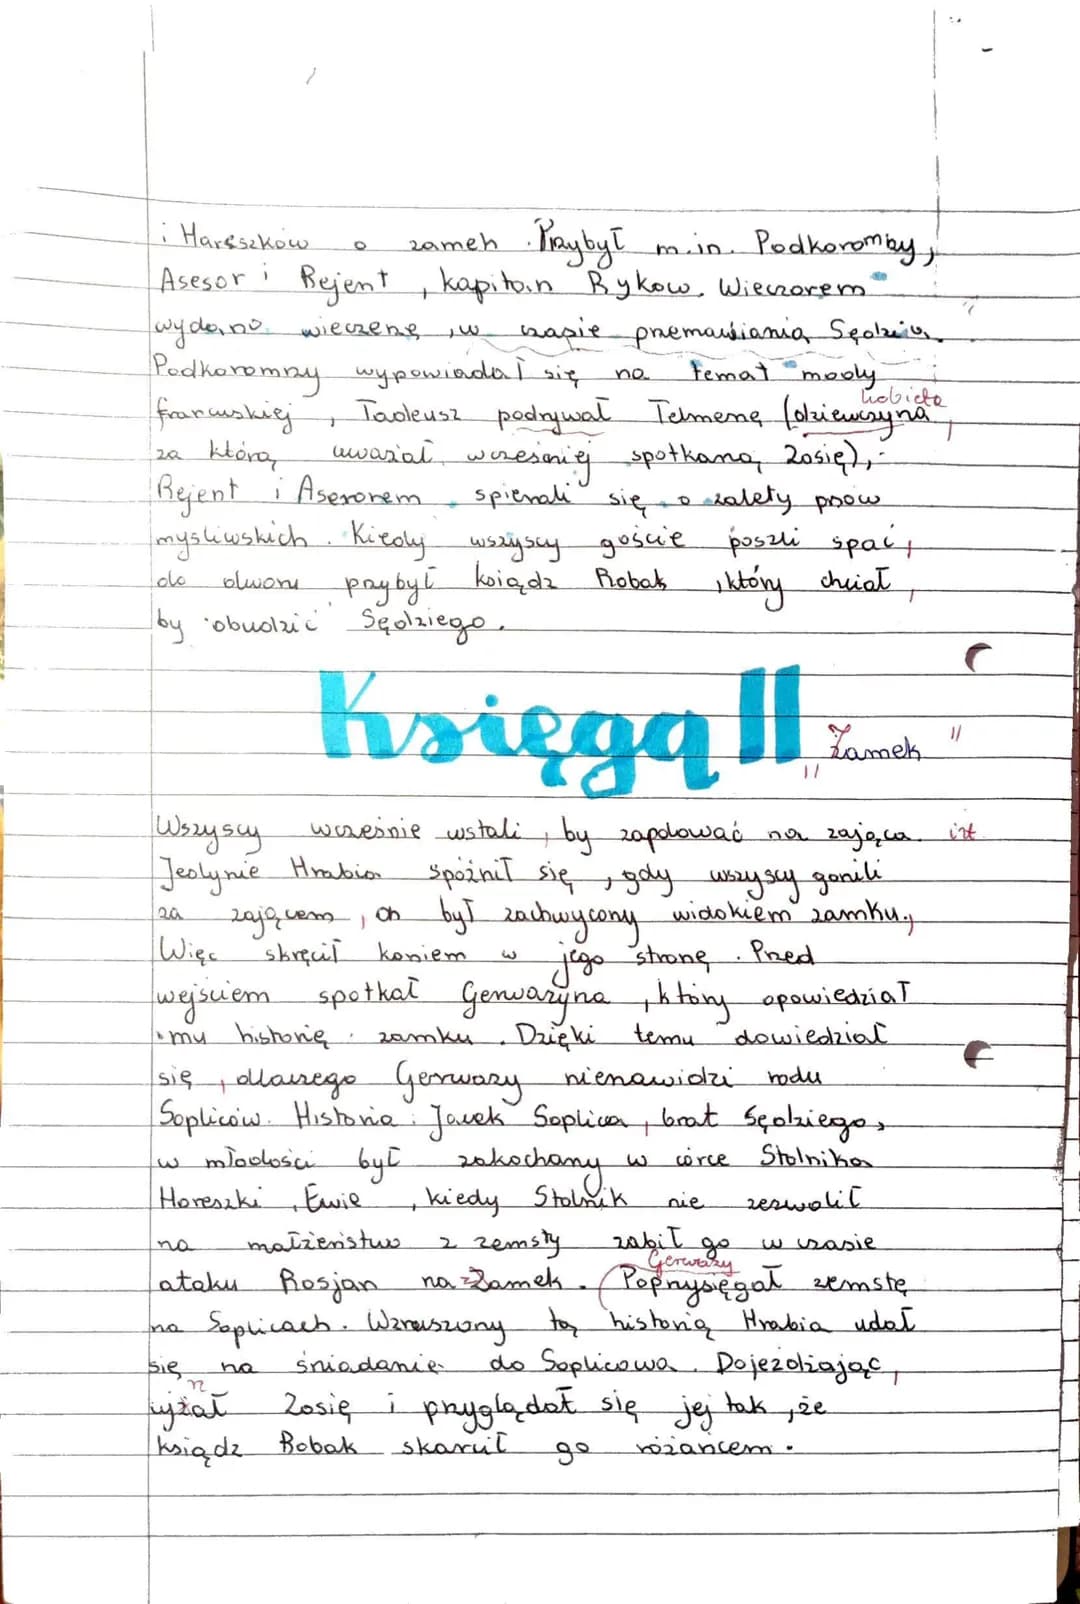 i Hareszków o zameh. Przybył m.in. Podkoromby,
Asesor i Rejent, kapitan Rykow. Wieczorem
wydano wieczerzę, w czasie przemawiania Sędzia
Podkoromzy wypowiadał się na temat mody
kobieta
francuskiej, Tadeusz podrywał Telmenę (dziewczyna
za którą uważał wcześniej spotkaną Zosię),
Rejent i Aserorem spierali się o zalety psów
myśliwskich. Kiedy wszyscy goście poszli spać,
do dworu przybył ksiądz Robak, który chciał,
by obudzić Sędziego.
Księga II „Zamek"
Wszyscy wcześnie wstali, by zapolować na zająca. int
Jedynie Hrabia spóźnił się, gdy wszyscy gonili
za zającem, on był zachwycony widokiem zamku.,
Więc skręcił koniem w jego stronę. Przed
wejściem spotkał Gerwazyna, który opowiedział
mu historię zamku. Dzięki temu dowiedział
się, dlaczego Gerwazy nienawidzi rodu
Sopliców. Historia: Jacek Soplica, brat Sędziego,
w młodości był zakochany w córce Stolnika
Horeszki, Ewie, kiedy Stolnik nie zezwolił
na małżeństwo z zemsty zabił go w czasie
Gerwazy
ataku Rosjan na Zamek. (Poprzysięgał zemstę
na Soplicach. Wzruszony tą historią Hrabia udał
się na śniadanie do Soplicowa. Dojeżdżając,
n
ujżał Zosię i przyglądał się jej tak, że
ksiądz Robak skarcił go różańcem.